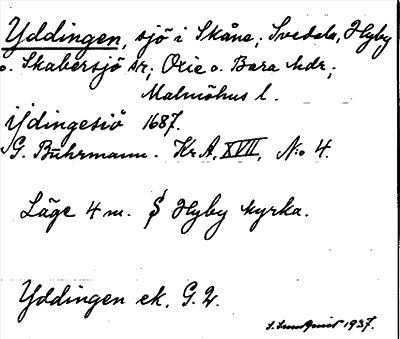 Yddingen, sjö i Skåne; Svedala, Hyby
o. Skabersjö snr; Oxie o. Bara hdr;
Malmöhus l.
Ydingesiö 1687.
G. Buhrmann. Kr A, XVIII, No 4.
Läge 4 m. S Hyby kyrka.
Yddingen ek. G. 2.
S. Lundquist 1937.